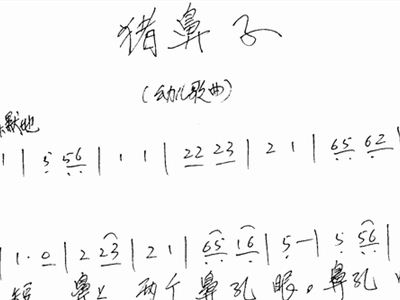 猪鼻子
(幼儿歌曲)
默地
1 | 5 56 | 1 1 | 22 23 | 2 1 | 65 62 |
| 1·0 | 2 23 | 2 1 | 65 16 | 5 — | 5 56 |
短 鼻上 两个鼻孔 眼。鼻孔